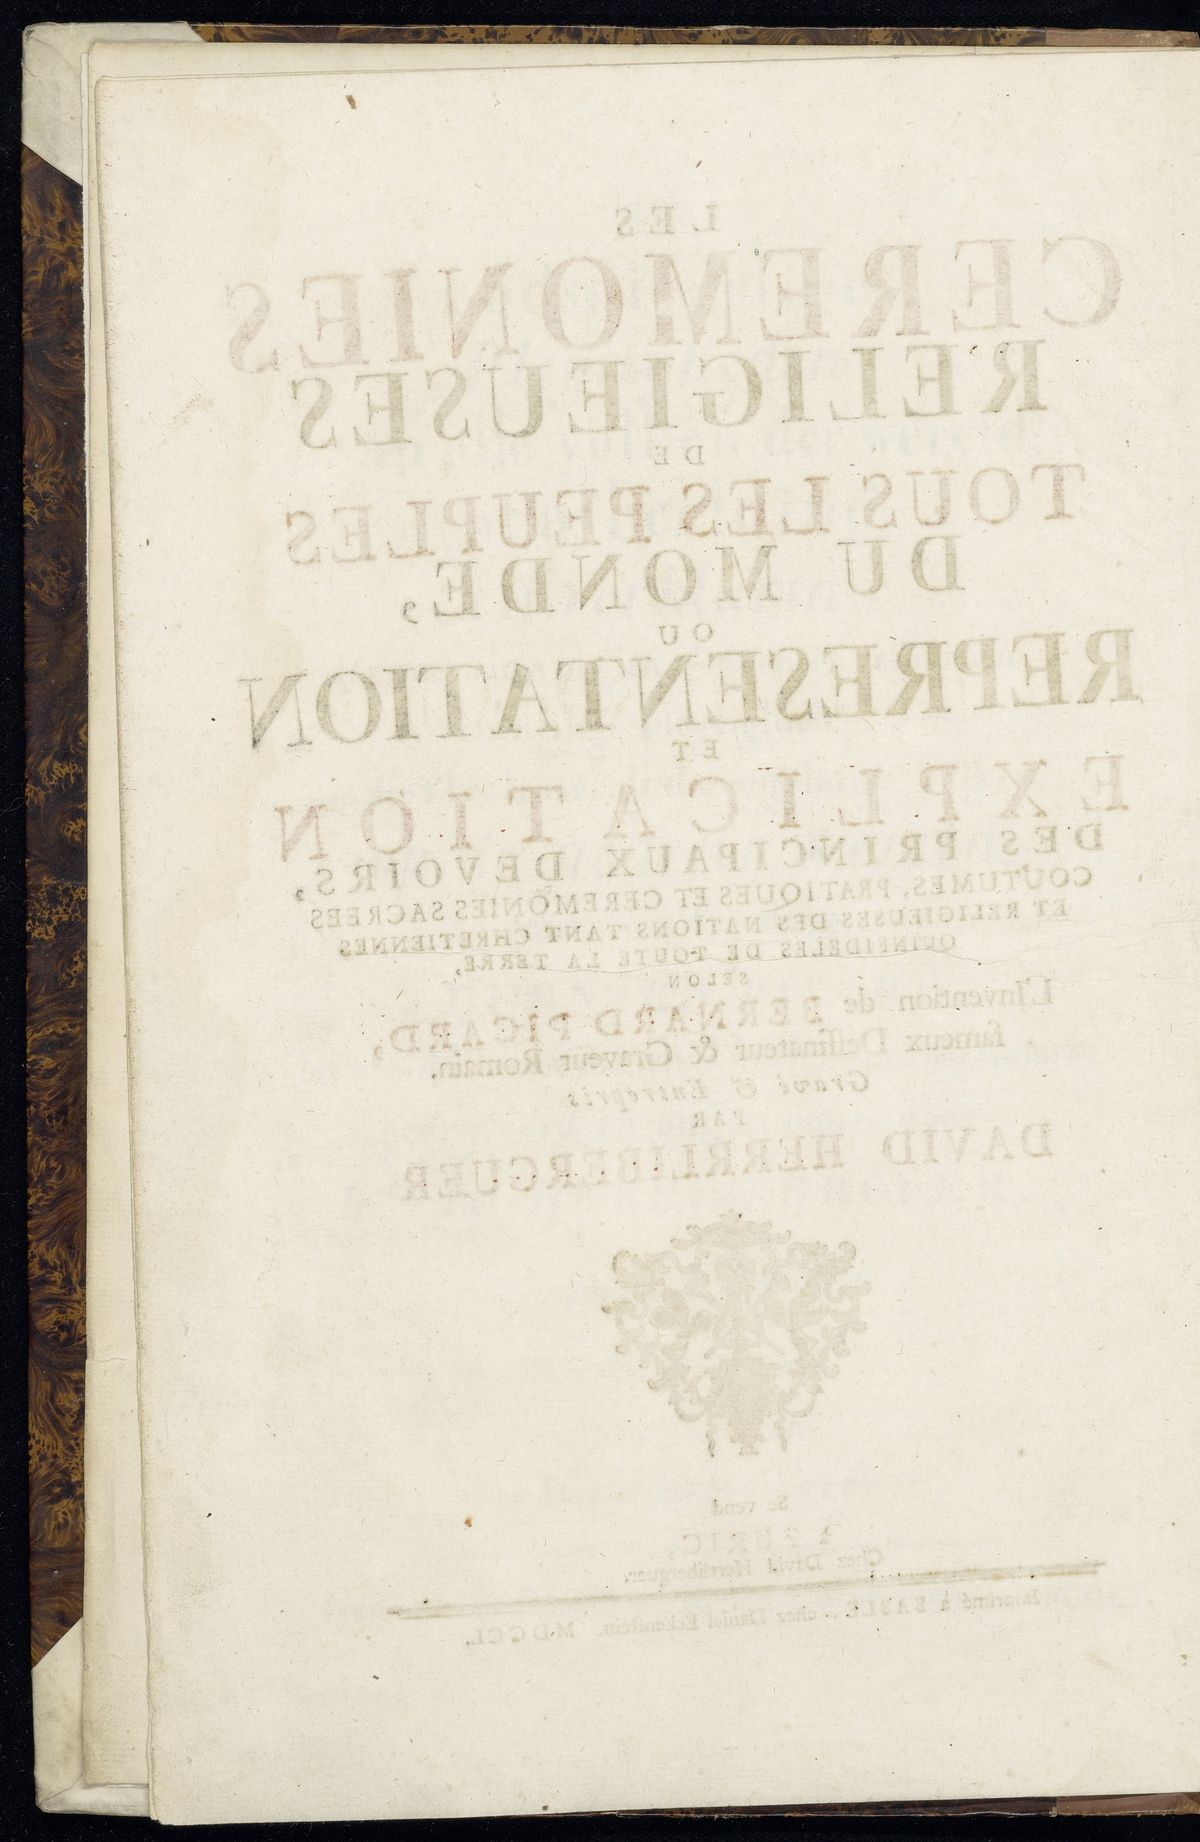 LES
CEREMONIES
RELIGIEUSES
DE
TOUS LES PEUPLES
DU MONDE,
OU
REPRESENTATION
ET
EXPLICATION
DES PRINCIPAUX DEVOIRS,
COUTUMES, PRATIQUES ET CEREMONIES SACREES
ET RELIGIEUSES DES NATIONS TANT CHRETIENNES
QUINFIDELES DE TOUTE LA TERRE,
SELON
L'Invention de BERNARD PICARD,
fameux Dessinateur & Graveur Romain.
Gravé & Entrepris
PAR
DAVID HERRLIBERGUER
Se vend
A ZURIC,
Chez David Herrliberguer.
Imprimé à BASLE .. chez Daniel Eckenstein. MDCCL.